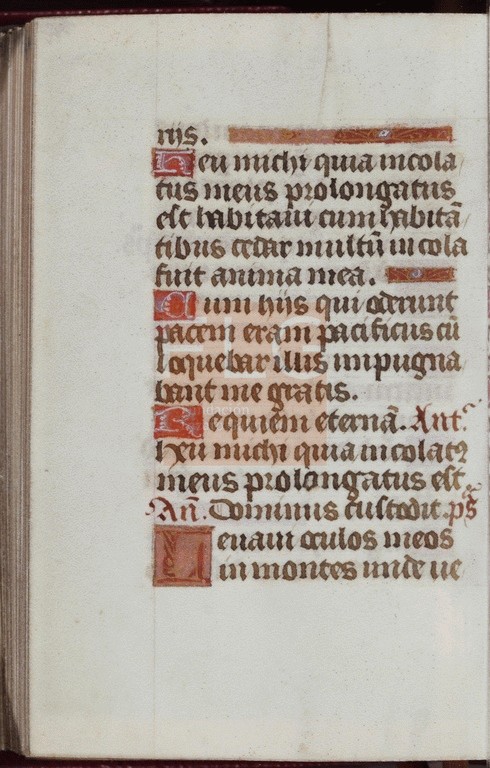 rijs.
Heu michi quia incola
tus meus prolongatus
est habitaui cum habitā
tibus cedar multū incola
fuit anima mea.
Cum hijs qui oderunt
pacem eram pacificus cū
loquebar illis impugna
bant me gratis.
Requiem eternā. Ant.
heu michi quia incolatꝰ
meus prolongatus est
An̄. Dominus custodit. ps̄
Leuaui oculos meos
in montes unde ue